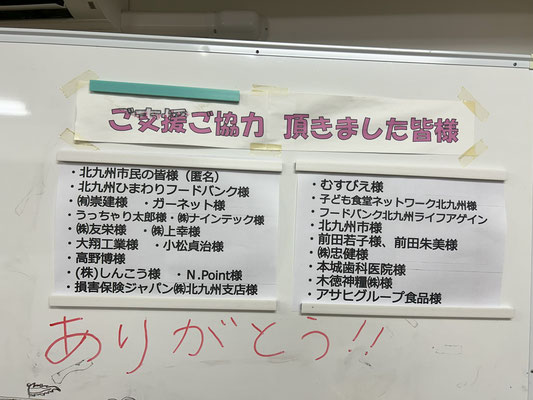 ご支援ご協力 頂きました皆様
・北九州市民の皆様（匿名）
・北九州ひまわりフードバンク様
・㈲崇建様 ・ガーネット様
・うっちゃり太郎様・㈲ナインテック様
・㈱友栄様 ・㈱上幸様
・大翔工業様 ・小松貞治様
・高野博様
・(株)しんこう様 ・N.Point様
・損害保険ジャパン㈱北九州支店様
・むすびえ様
・子ども食堂ネットワーク北九州様
・フードバンク北九州ライフアゲイン
・北九州市様
・前田若子様、前田朱美様
・㈱忠健様
・本城歯科医院様
・木徳神糧㈱様
・アサヒグループ食品様
ありがとう!!